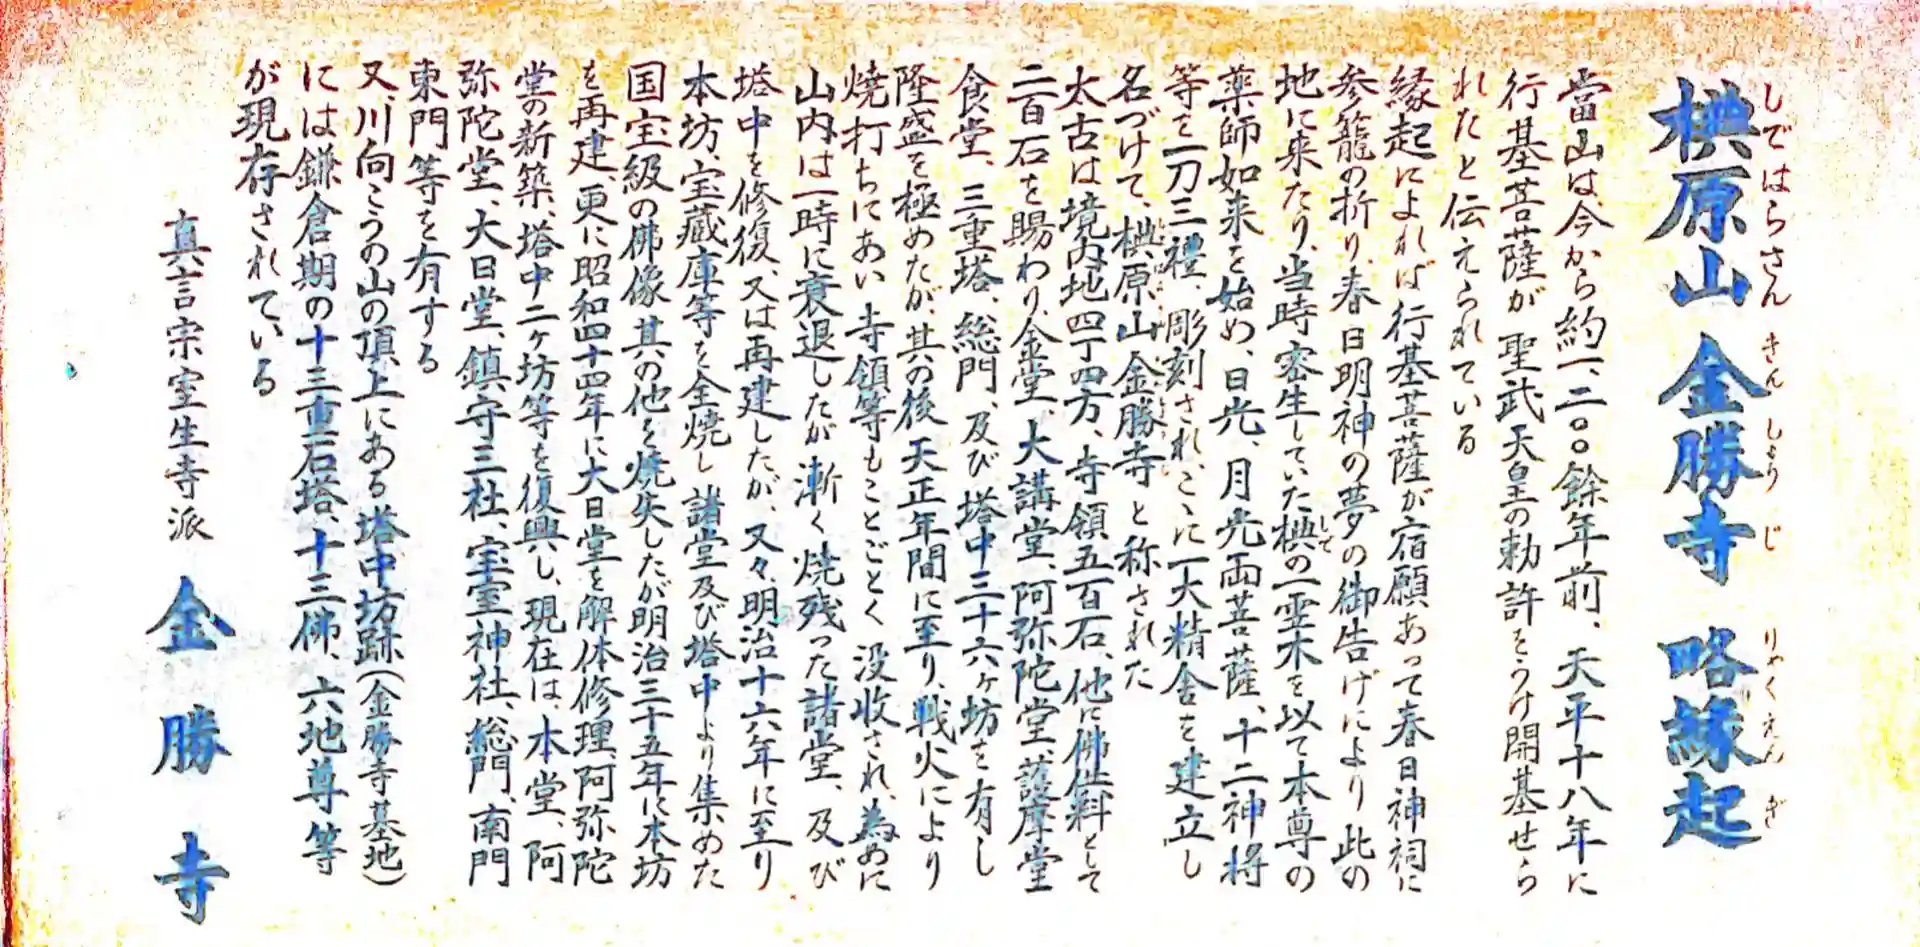 しではらさん きんしょうじ りゃくえんぎ
椣原山 金勝寺 略縁起
當山は、今から約一、二〇〇餘年前、天平十八年に
行基菩薩が 聖武天皇の勅許をうけ開基せら
れたと伝えられている
縁起によれば 行基菩薩が宿願あって春日神祠に
参籠の折り、春日明神の夢の御告げにより此の
地に来たり、当時密生していた椣の一霊木を以て本尊の
薬師如来を始め、日光、月光両菩薩、十二神将
等を一刀三禮、彫刻され、こゝに一大精舎を建立し
名づけて、椣原山金勝寺と称された
太古は境内地四丁四方、寺領五百石、他に佛供料として
二百石を賜わり、金堂、大講堂、阿弥陀堂、護摩堂
食堂、三重塔、総門、及び塔中三十六ヶ坊を有し
隆盛を極めたが、其の後 天正年間に至り、戦火により
焼打ちにあい 寺領等もことごとく 没収され、為めに
山内は一時に衰退したが 漸く焼残った諸堂、及び
塔中を修復、又は再建したが、又々、明治十六年に至り
本坊、宝蔵庫等を全焼し 諸堂及び塔中より集めた
国宝級の佛像 其の他を焼失したが明治三十五年に本坊
を再建、更に昭和四十四年に大日堂を解体修理、阿弥陀
堂の新築、塔中二ヶ坊等を復興し、現在は、本堂、阿
弥陀堂、大日堂、鎮守三社、宝室神社、総門、南門
東門等を有する
又、川向こうの山の頂上にある塔中坊跡(金勝寺基地)
には鎌倉期の十三重石塔、十三佛、六地尊等
が現存されている
真言宗室生寺派 金勝寺